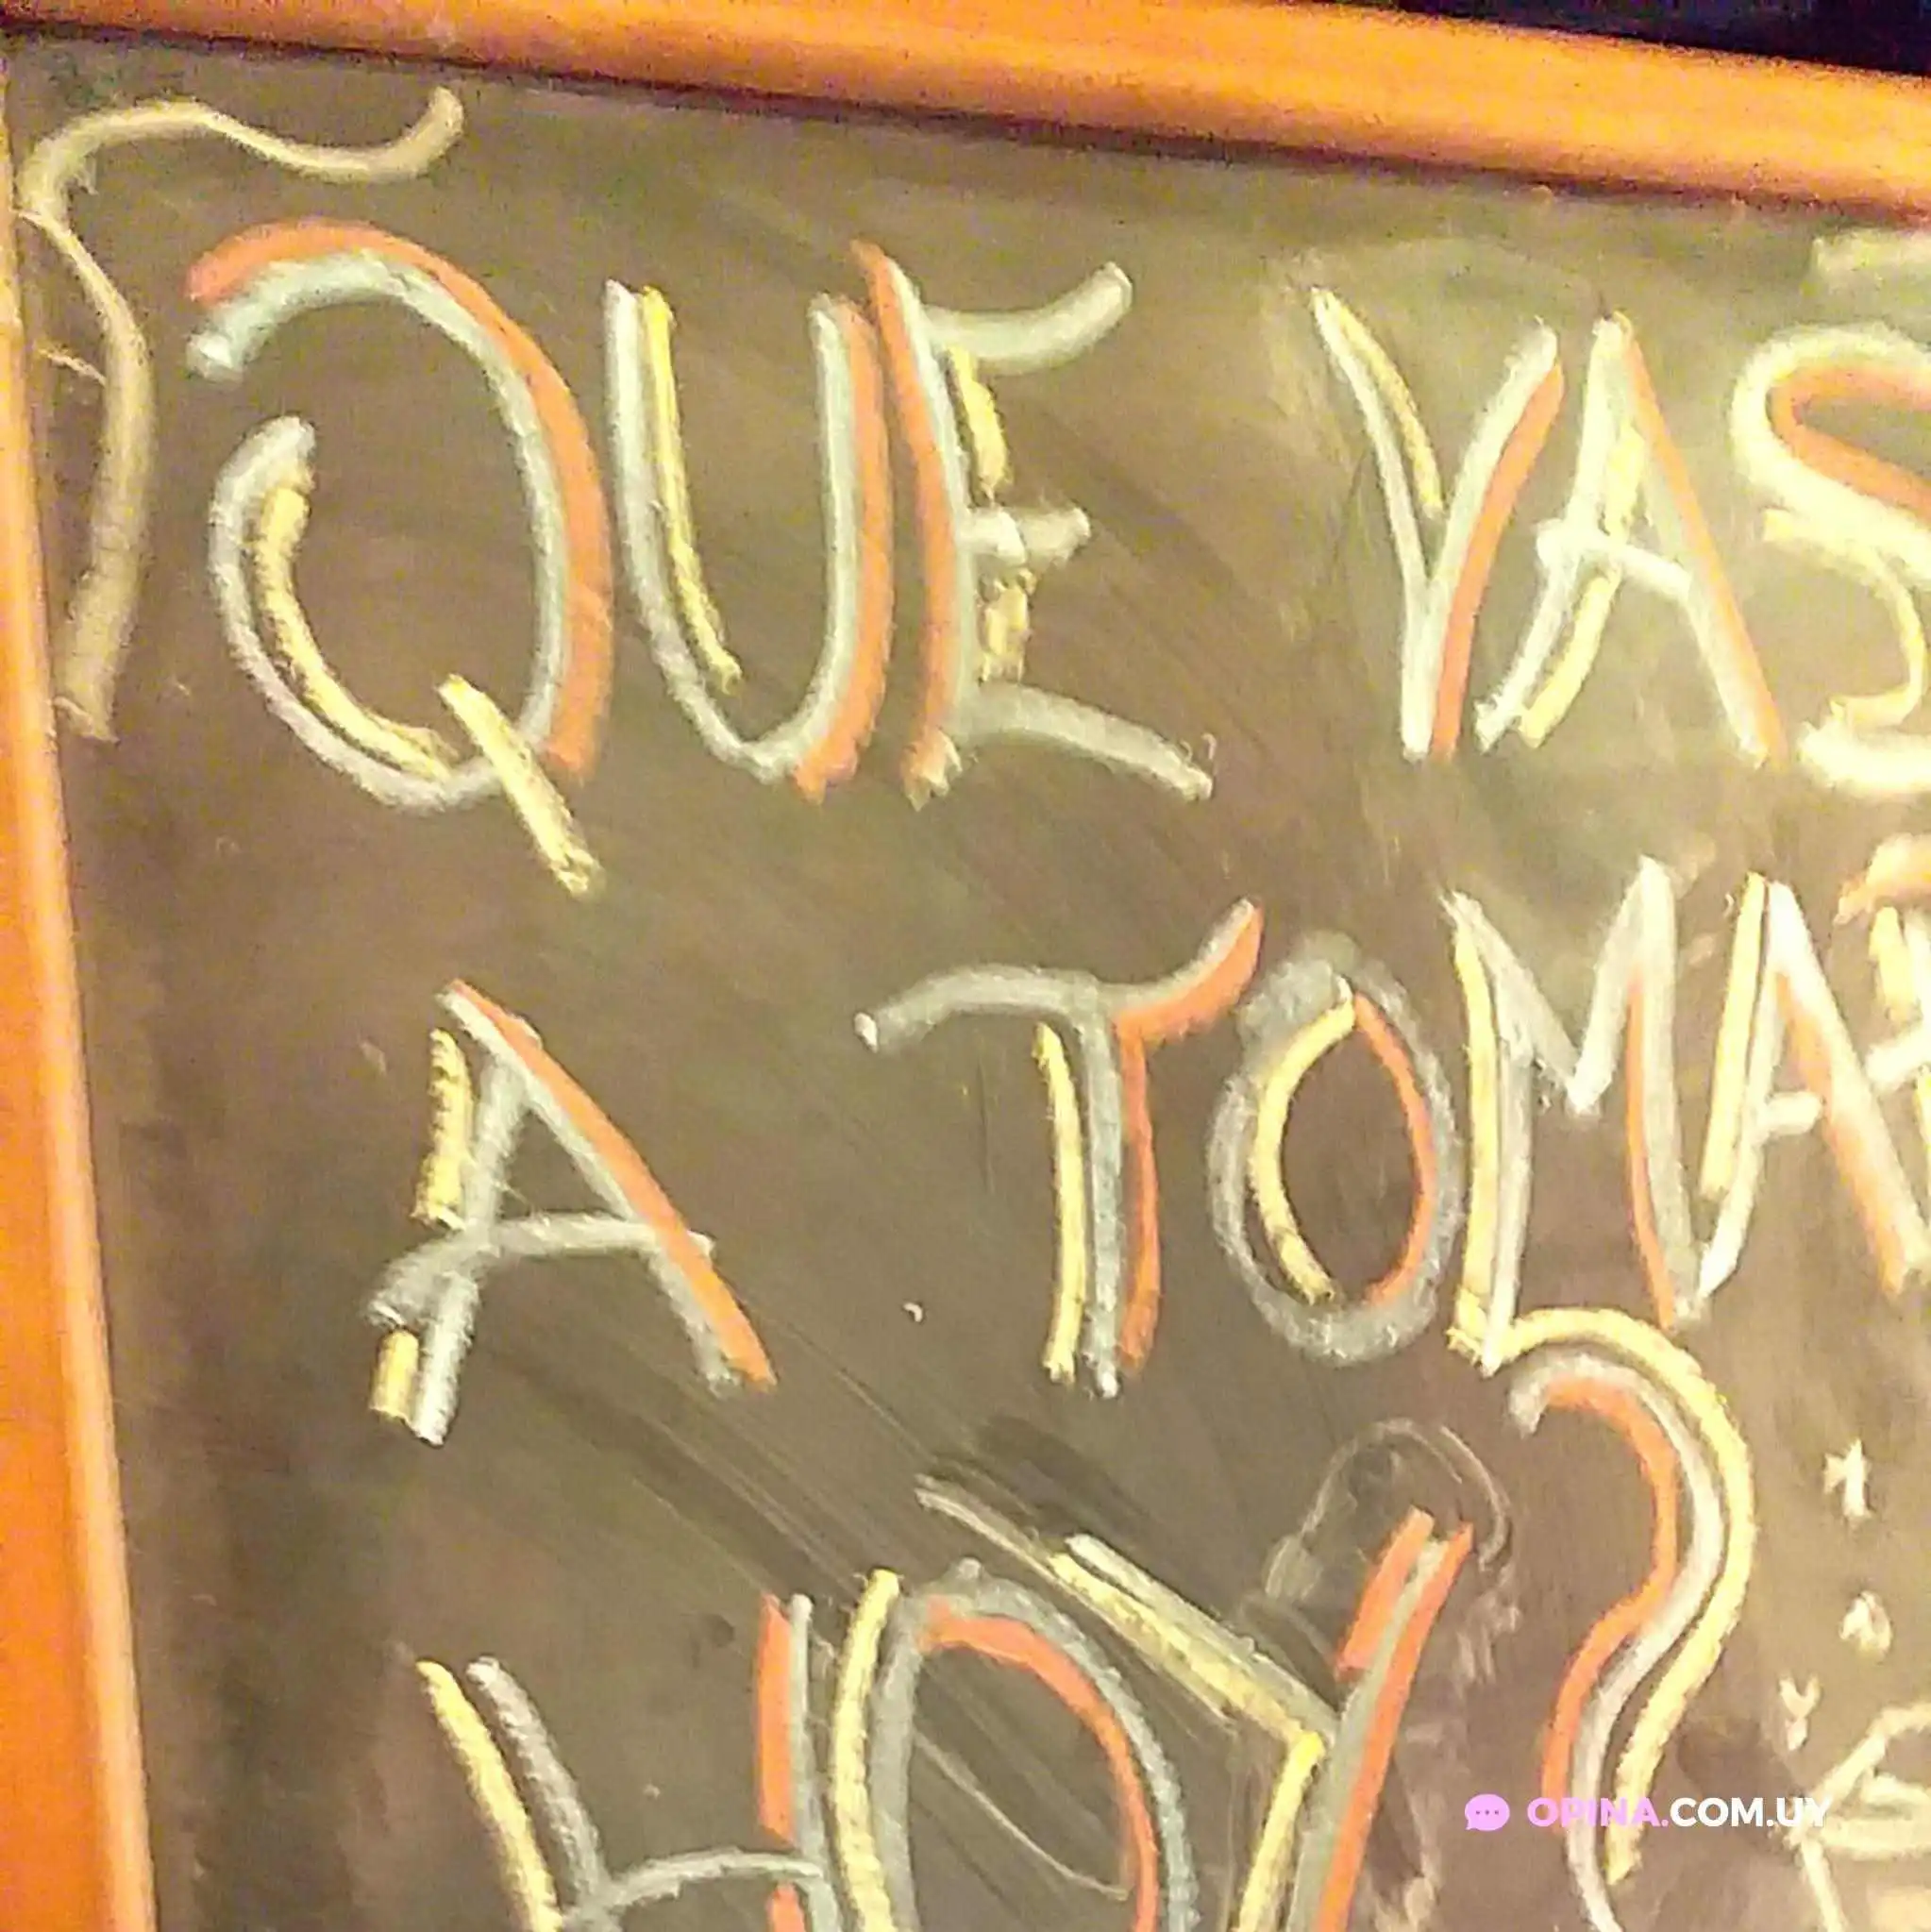 QUE VAS
A TOMAR
HOY?
OPINA.COM.UY